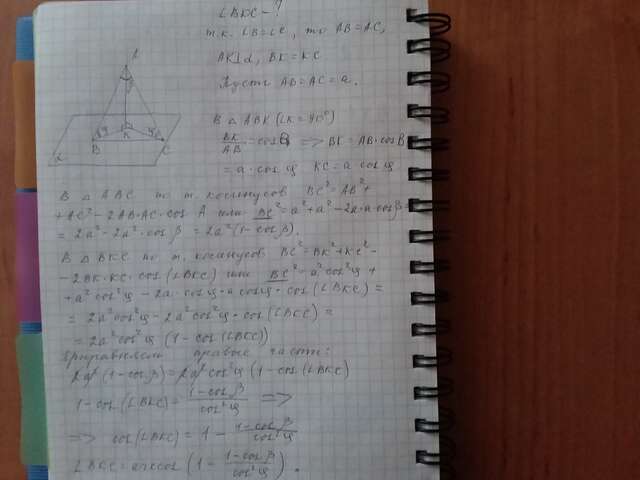 ∠BKC - ?
т.к. ∠B=∠C, то AB=AC,
AK⊥α, BK=KC
Пусть AB=AC=a.
В △ABK (∠K=90°)
BK/AB = cosB ⇒ BK=AB·cosB
= a·cosφ KC=a·cosφ
В △ABC по т. косинусов BC²=AB²+
+AC²-2AB·AC·cos A или BC²=a²+a²-2a·a·cosβ
= 2a²-2a²·cosβ = 2a²(1-cosβ).
В △BKC по т. косинусов BC²=BK²+KC²-
-2BK·KC·cos(∠BKC) или BC²=a²cos²φ+
+a²cos²φ-2a·cosφ·a·cosφ·cos(∠BKC)=
= 2a²cos²φ-2a²cos²φ·cos(∠BKC)=
= 2a²cos²φ(1-cos(∠BKC))
Приравняем правые части:
2a²(1-cosβ)=2a²cos²φ(1-cos(∠BKC))
1-cos(∠BKC)= (1-cosβ)/cos²φ ⇒
⇒ cos(∠BKC)=1-(1-cosβ)/cos²φ
∠BKC=arccos(1-(1-cosβ)/cos²φ).
A
C
B
K
α
φ
φ